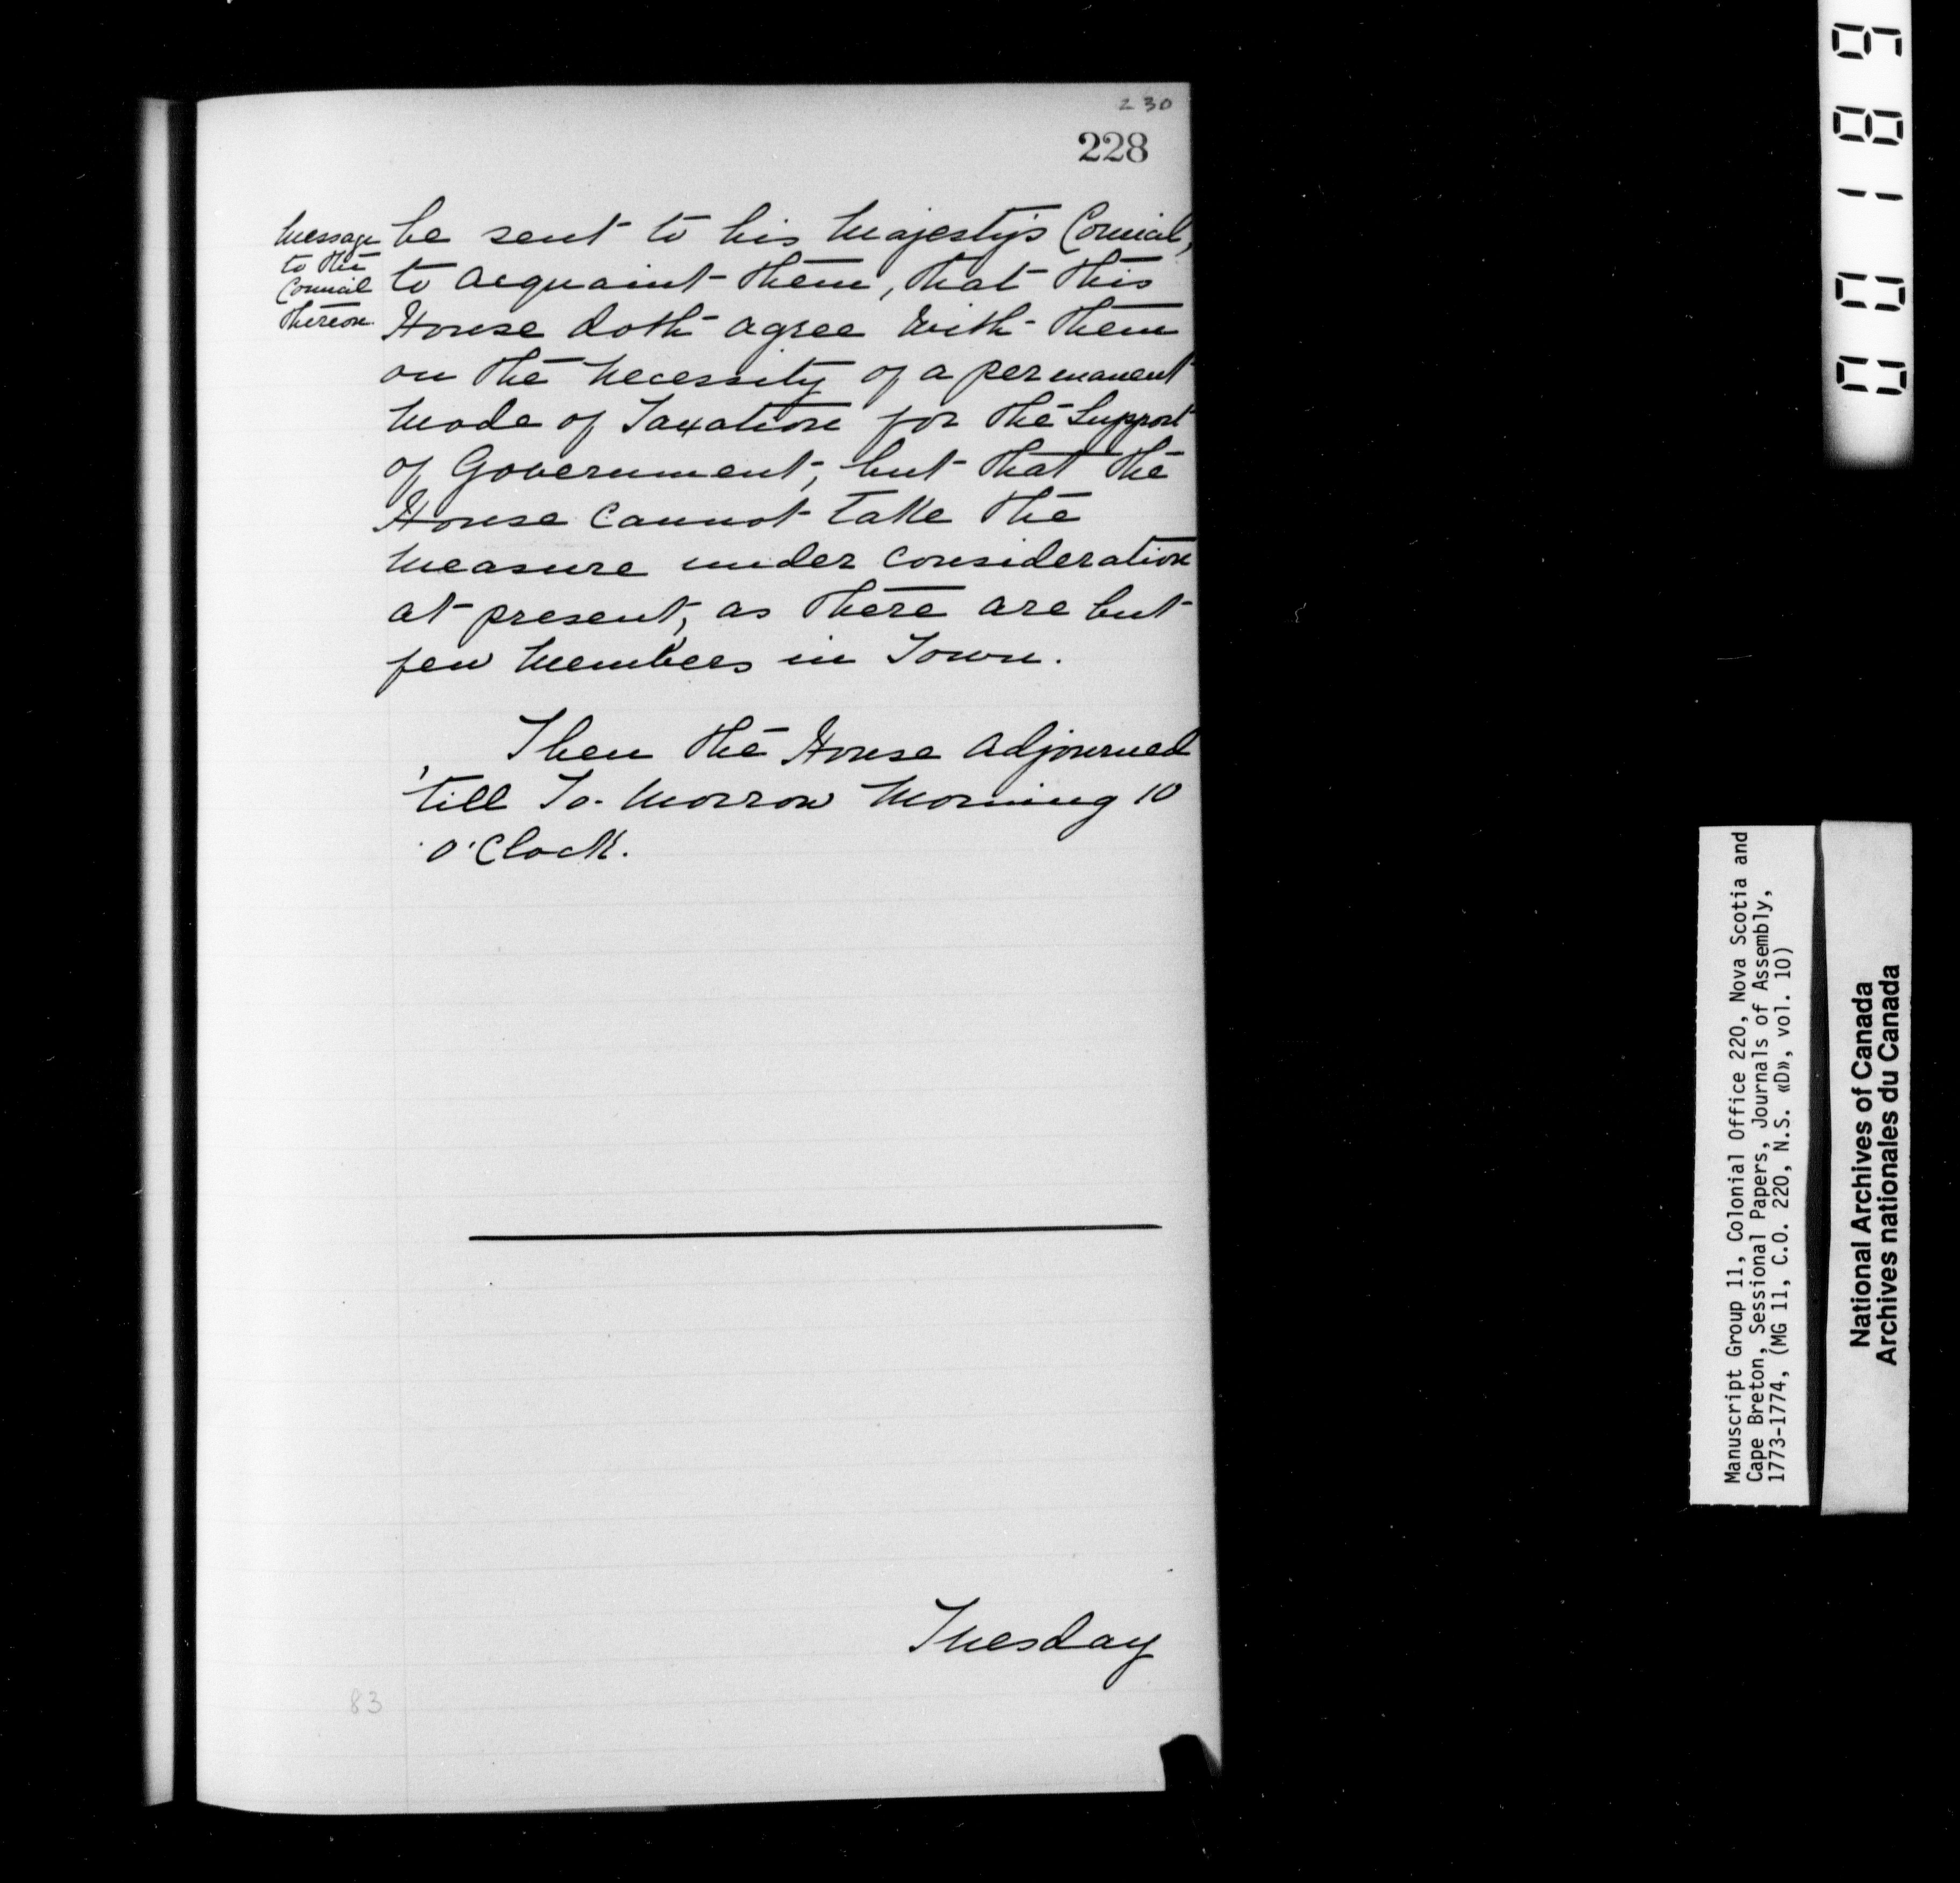 230
228
Message
to the
Council
thereon.
be sent to his Majesty's Council,
to acquaint them, that this
House doth agree with them
on the necessity of a permanent
Mode of Taxation for the Support
of Government; but that the
House cannot take the
Measure under consideration
at present, as there are but
few Members in Town.
Then the House adjourned
'till To-Morrow Morning 10
O'Clock.
Tuesday
83
001189
Manuscript Group 11, Colonial Office 220, Nova Scotia and
Cape Breton, Sessional Papers, Journals of Assembly,
1773-1774, (MG 11, C.O. 220, N.S. «D», vol. 10)
National Archives of Canada
Archives nationales du Canada